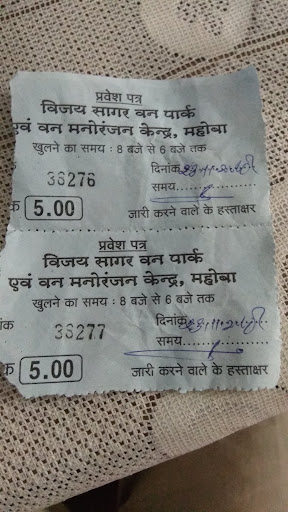 प्रवेश पत्र
विजय सागर वन पार्क
एवं वन मनोरंजन केन्द्र, महोबा
खुलने का समय : 8 बजे से 6 बजे तक
दिनांक
36276
समय..................
5.00
जारी करने वाले के हस्ताक्षर
प्रवेश पत्र
विजय सागर वन पार्क
एवं वन मनोरंजन केन्द्र, महोबा
खुलने का समय : 8 बजे से 6 बजे तक
दिनांक
36277
समय..................
5.00
जारी करने वाले के हस्ताक्षर